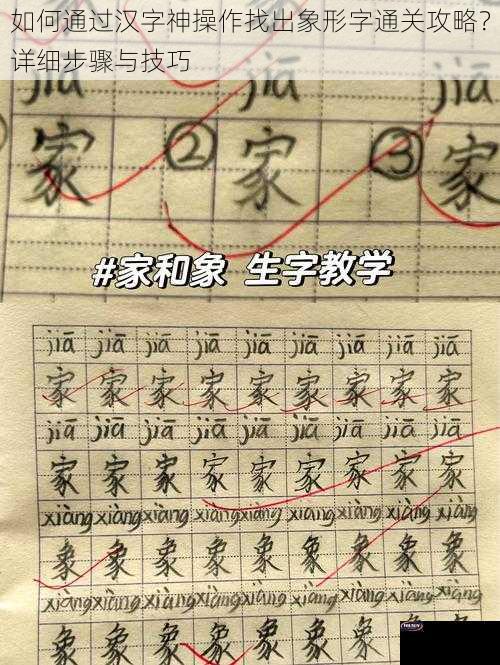 如何通过汉字神操作找出象形字通关攻略？
详细步骤与技巧
jiā jiā jiā
家 ② 家 ③ 家
#家和象 生字教学
jiā jiā jiā jiā jiā jiā jiā jiā jiā
家 家 家 家 家 家 家 家 家
jiā jiā jiā jiā jiā jiā jiā jiā jiā
家 家 家 家 家 家 家 家 家
xiàng xiàng xiàng xiàng xiàng xiàng xiàng xiàng xiàng
象 象 象 象 象 象 象 象 象
xiàng xiàng xiàng xiàng xiàng xiàng xiàng xiàng xiàng
象 象 象 象 象 象 象 象 象